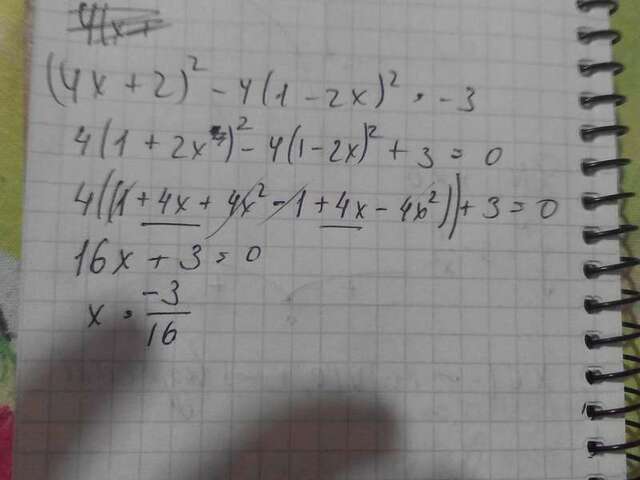 (4x + 2)² - 4(1 - 2x)² = -3
4(1 + 2x)² - 4(1 - 2x)² + 3 = 0
4((1 + 4x + 4x² - 1 + 4x - 4x²)) + 3 = 0
16x + 3 = 0
x = -3/16